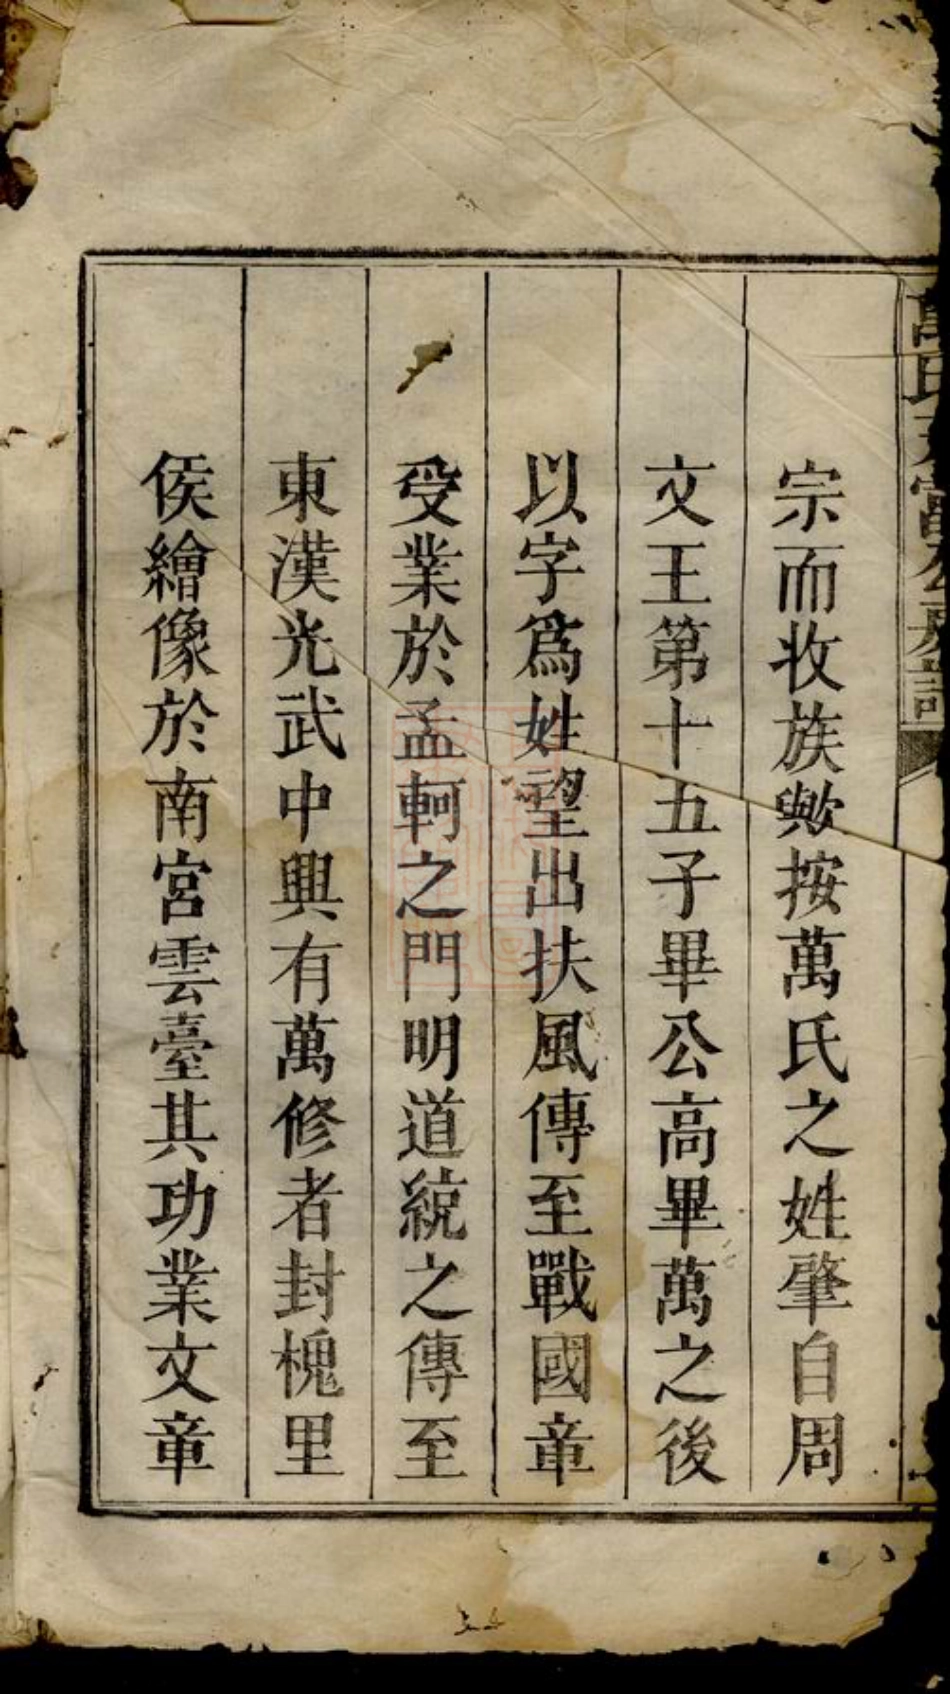 宗而收族歟按萬氏之姓肇自周
文王第十五子畢公高畢萬之後
以字爲姓望出扶風傳至戰國章
受業於孟軻之門明道統之傳至
東漢光武中興有萬修者封槐里
侯繪像於南宮雲臺其功業文章